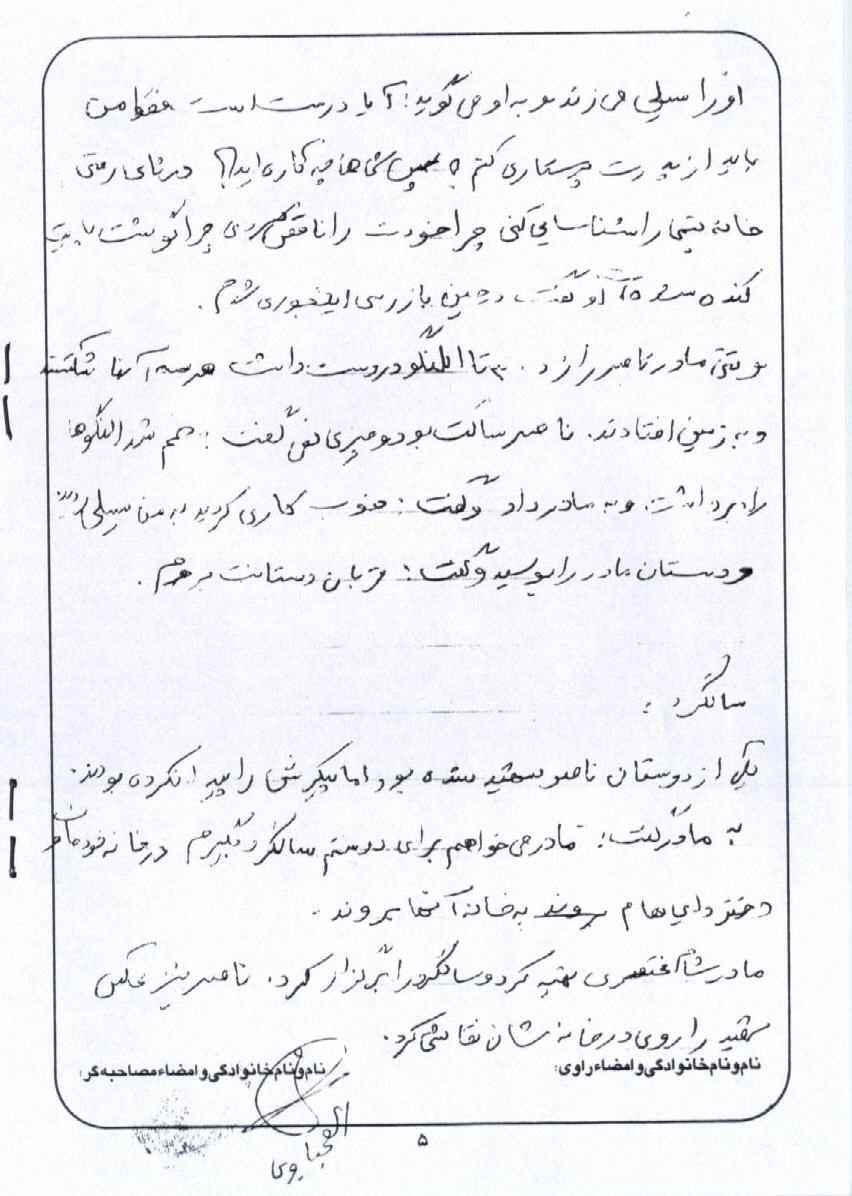 او را سیلی می زند و به او می گوید: آیا درست است فقط من
باید از پدرت پرستاری کنم پس شماها چه کاره اید؟ در ثانی رفتی
خانه تیمی را شناسایی کنی چرا خودت را ناقص کردی چرا گوشت پایت
کنده شده؟ او گفت در حین بازرسی اینجوری شدم.
وقتی مادر ناصر را زد. ۳ تا النگو در دست داشت هر سه آنها شکستند
و به زمین افتادند. ناصر ساکت بود و چیزی نمی گفت: خم شد النگوها
را برداشت و به مادر داد و گفت: خوب کاری کردید به من سیلی زدید
و دستان مادر را بوسید و گفت: قربان دستانت مادرم.
سالگرد:
یکی از دوستان ناصر شهید شده بود اما پیکرش را پیدا نکرده بودند.
به مادر گفت: مادر می خواهم برای دوستم سالگرد بگیرم در خانه خودمان
دختر دایی هام به خانه آنها بروند.
مادر شام مختصری تهیه کرد و سالگرد را برگزار کرد. ناصر نیز عکس
شهید را روی در خانه شان نقاشی کرد.
نام و نام خانوادگی و امضاء راوی: نام و نام خانوادگی و امضاء مصاحبه گر:
۵